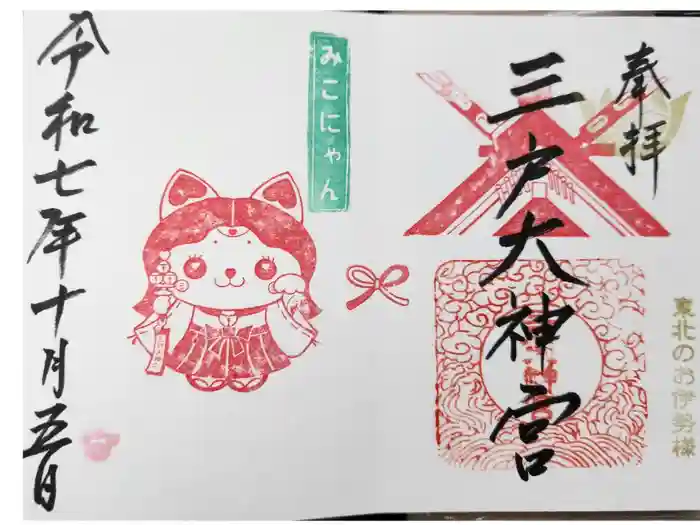 奉拝
三戸大神宮
東北のお伊勢様
みこにゃん
令和七年十月五日